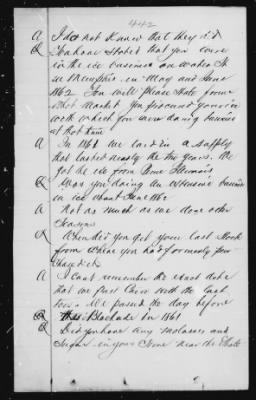 442
A I do not know that they did
Q You have stated that you were
in the ice business on Water St
in Memphis in May and June
1862 You will please state from
what market you procured your ice
with which you were doing business
at that time
A In 1861 we laid in a supply
that lasted nearly the two years. We
got the ice from Illinois
Q Was you doing an extensive business
in ice about June 1862
A Not as much as we done other
Seasons
Q When did you get your last stock
from where you had formerly pur-
chased it
A I cant remember the exact date
that we past Cairo with the last
tow. We passed the day before
the Blockade in 1861
Q Did you have any molasses and
Sugar in your Store near the